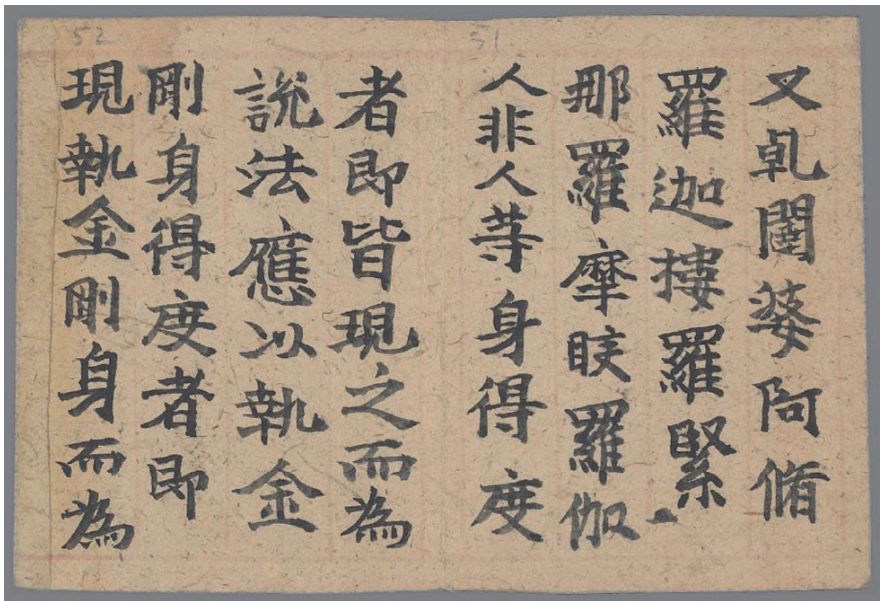 51
叉乹闥婆阿脩
羅迦摟羅緊
那羅摩睺羅伽
人非人等身得度
52
者即皆現之而為
說法應以執金
剛身得度者即
現執金剛身而為